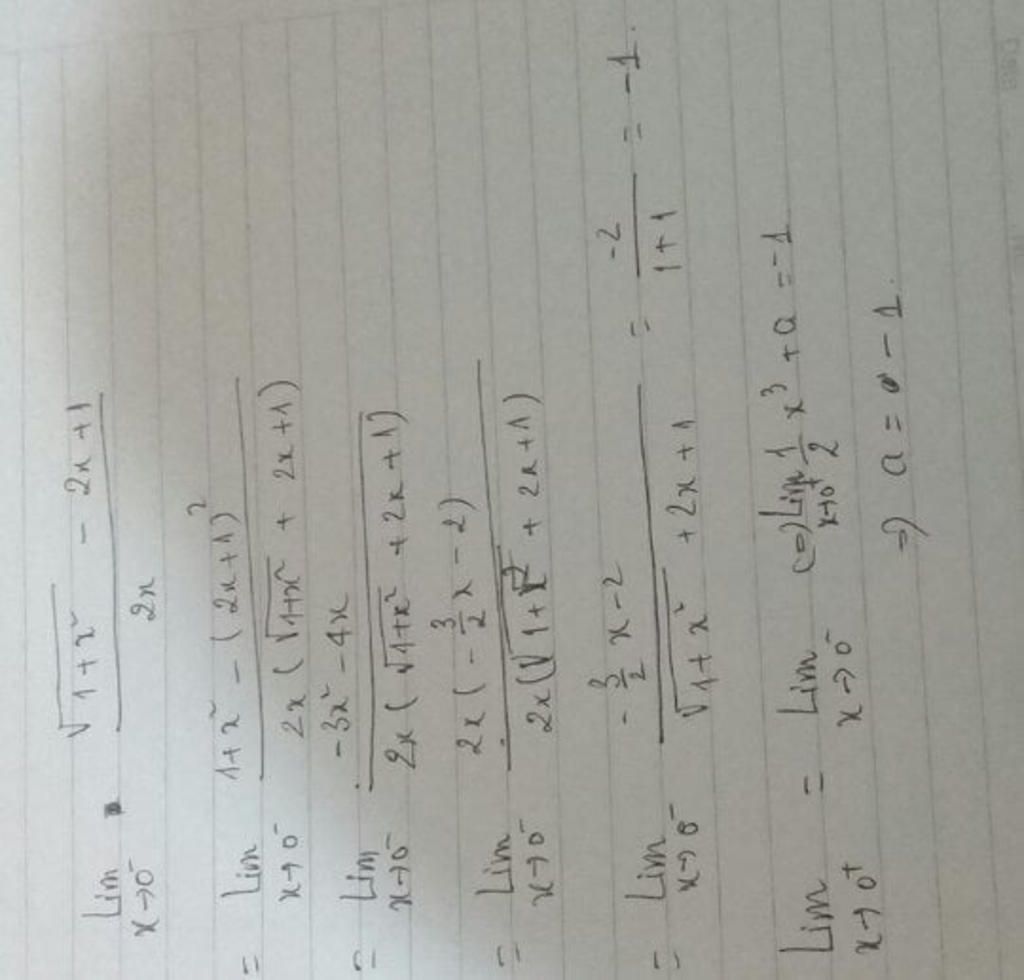 lim x→0⁻ (√(1+x²) - 2x+1) / 2x
= lim x→0⁻ (1+x² - (2x+1)²) / (2x(√(1+x²) + 2x+1))
= lim x→0⁻ (-3x² - 4x) / (2x(√(1+x²) + 2x+1))
= lim x→0⁻ (2x(-3/2 x - 2)) / (2x(√(1+x²) + 2x+1))
= lim x→0⁻ (-3/2 x - 2) / (√(1+x²) + 2x+1) = -2 / (1+1) = -1.
lim x→0⁺ = lim x→0⁻ (=) lim x→0⁺ 1/2 x³ + a = -1
⇒ a = -1.